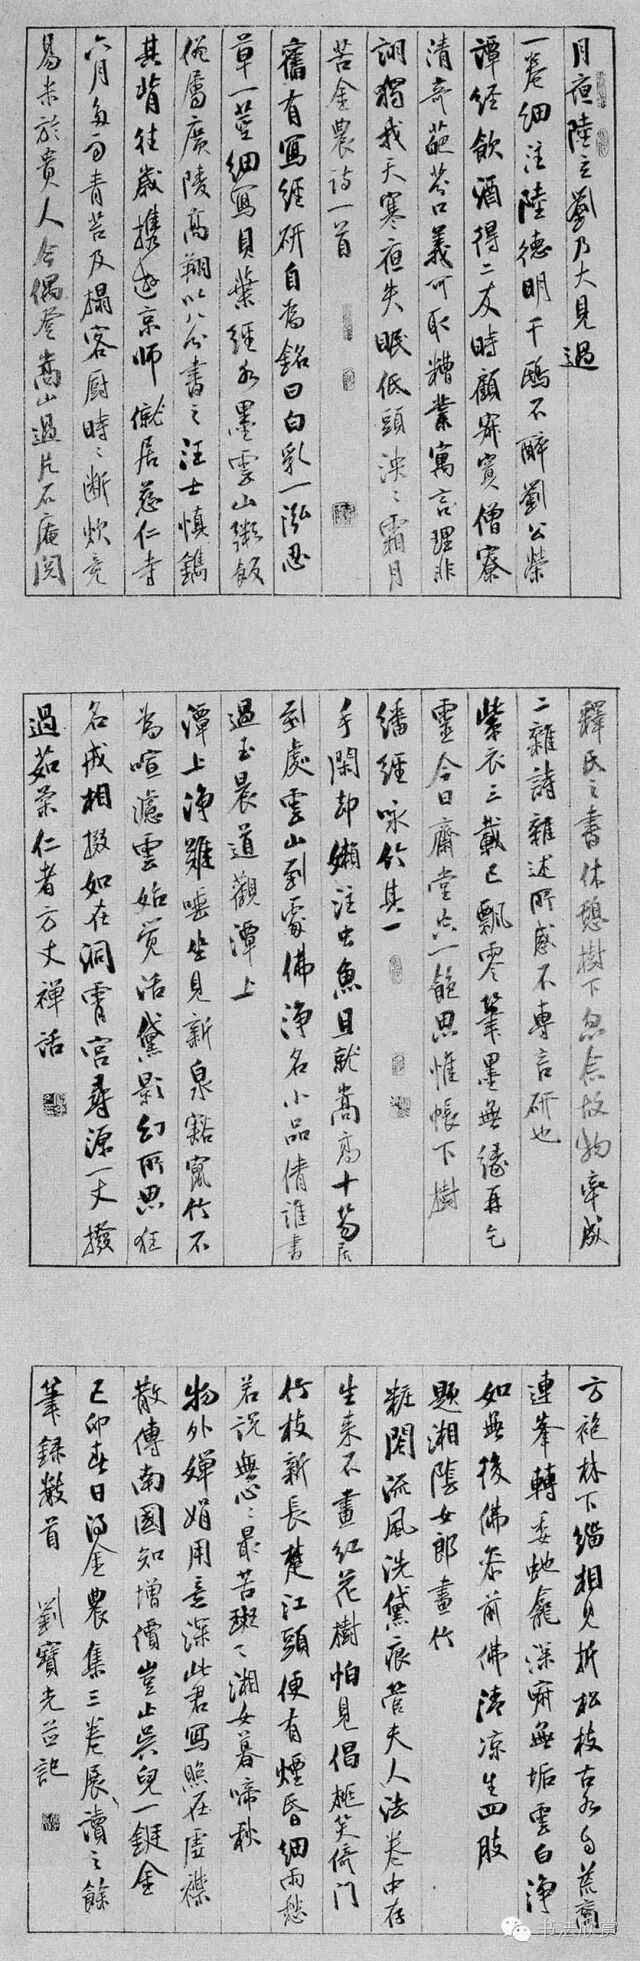 月夜陸立劉乃大見過
一卷细注陸德明干鴎不醉劉公榮
譚經飲酒得二友時顧寄賓僧寮
清奇葩芬口義可取糟業寓言理非
詡獨我天寒夜失眠低頭泱〻霜月
苦金農詩一首
舊有寫經研自為銘曰白乳一泓忍
草一莖细寫貝葉經水墨雲山粥飯
僧屬廣陵高翔以八分書之汪士慎鐫
其背往歲携遊京師僦居慈仁寺
六月多雨青苔及榻客厨時〻断炊竟
易米於貴人今偶登嵩山過片石庵閱
釋氏之書休憩樹下忽念故物率成
二雜詩雜述所感不專言研也
紫衣三載已飄零筆墨無緣再乞
靈今日齋堂忘一飽思惟帳下樹
繙經咏竹其一
手閑却嬾注虫魚且就嵩高十笏居
到處雲山到處佛浄名小品倩誰書
過玉晨道觀潭上
潭上浄雖唾坐見新泉豁寫竹不
為喧濾雲始觉活黛影幻所思狂
名戒相掇如在洞霄宮尋源一丈撥
過茹荣仁者方丈禅話
方袍林下緇相見折松枝古水白荒商
連峯轉委虵龕深嘛無垢雲白浄
如無後佛吞前佛清凉生四肢
题湘陰女郎畫竹
粧閣流風洗黛痕管夫人法卷中存
生来不畫紅花樹怕見倡桃笑倚门
竹枝新長楚江頭便有煙昏细雨愁
若説無心〻最苦斑〻湘女暮啼秋
物外嬋娟用意深此君寫照在虚襟
散傳南國知增價豈止吴兒一鋌金
己卯春日得金農集三卷展讀之餘
筆録數首 劉寶光並記
书法欣赏